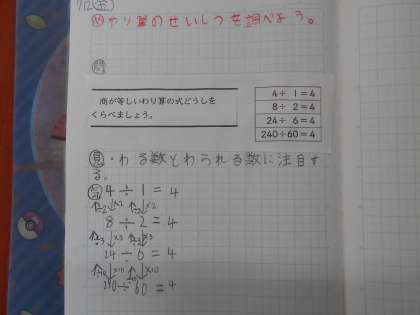 7/12(金)
め わり算のせいしつを調べよう。
問
商が等しいわり算の式どうしを
くらべましょう。
4÷ 1＝4
8÷ 2＝4
24÷ 6＝4
240÷60＝4
見・わる数とわられる数に注目す
る。
4÷1＝4
÷2 ×2 ÷2 ×2
8÷2＝4
÷3 ×3 ÷3 ×3
24÷6＝4
÷10 ×10 ÷10 ×10
240÷60＝4